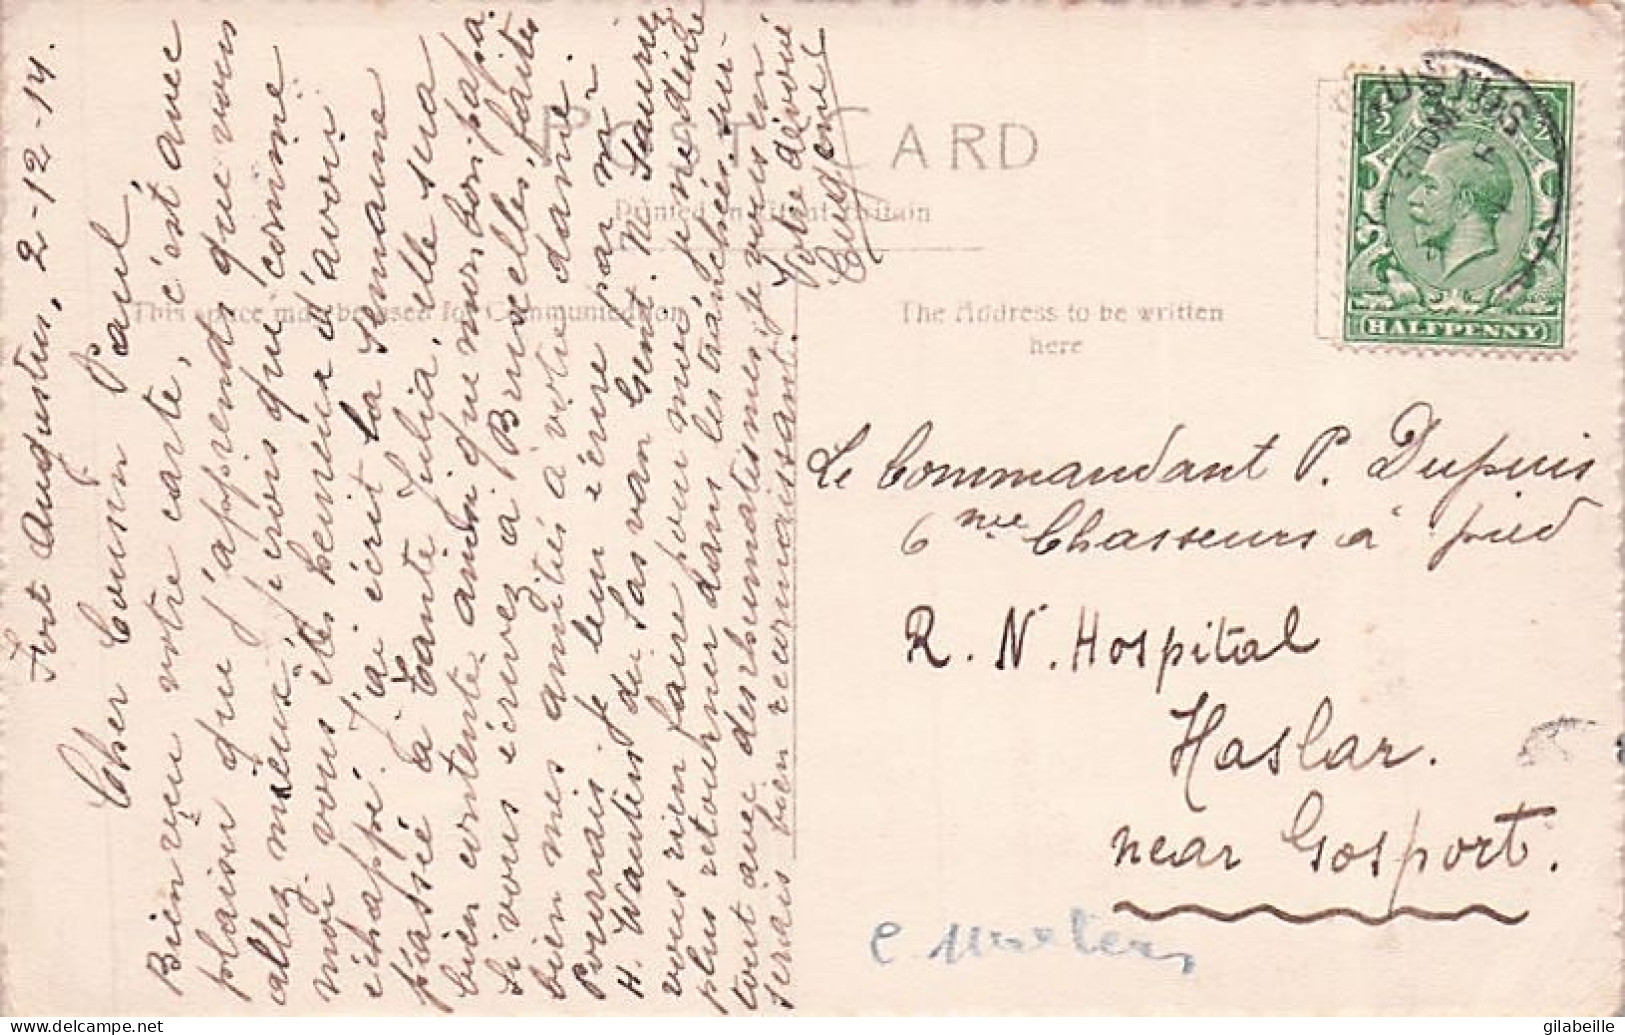 Fort Augustus, 2-12-14.
Cher Cousin Paul,
Bien reçu votre carte, c'est avec
plaisir que j'apprends que vous
allez mieux, je crois que comme
moi vous êtes heureux d'avoir
échappé. J'ai écrit la semaine
passée à Tante Julia, elle sera
bien contente ainsi que mon bon papa.
Si vous écrivez à Bruxelles, faites
bien mes amitiés à votre dame.
Pourrais-je leur écrire par Mr
H. Wautiers du Sas van Gent. Ne sauriez
vous rien faire pour moi, pr ne
plus retourner dans les tranchées, sur-
tout avec des rhumatismes, je vous en
serais bien reconnaissant.
Votre dévoué
Eugène
POST CARD
Printed in Great Britain
This space may be used for Communication
The Address to be written
here
HALFPENNY
Le Commandant P. Dupuis
6me Chasseurs à pied
R. N. Hospital
Haslar.
near Gosport.
www.delcampe.net
gilabeille